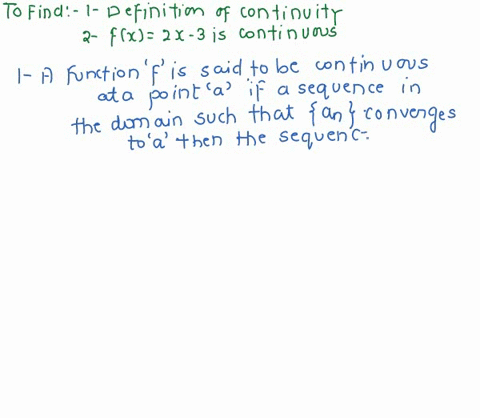 To Find:- 1- Definition of continuity
2- f(x) = 2x-3 is continuous
1- A function 'f' is said to be continuous
at a point 'a' if a sequence in
the domain such that {an} converges
to 'a' then the sequenc-